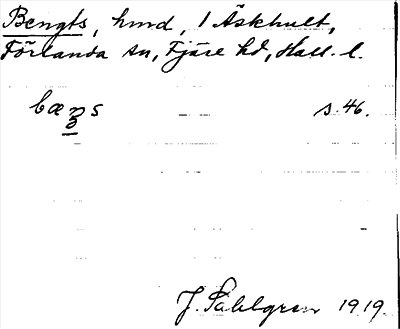 Bengts, hmd, 1 Äskhult,
Förlanda sn, Fjäre hd, Hall. l.
bæꜫs s. 46.
J. Sahlgren 1919.